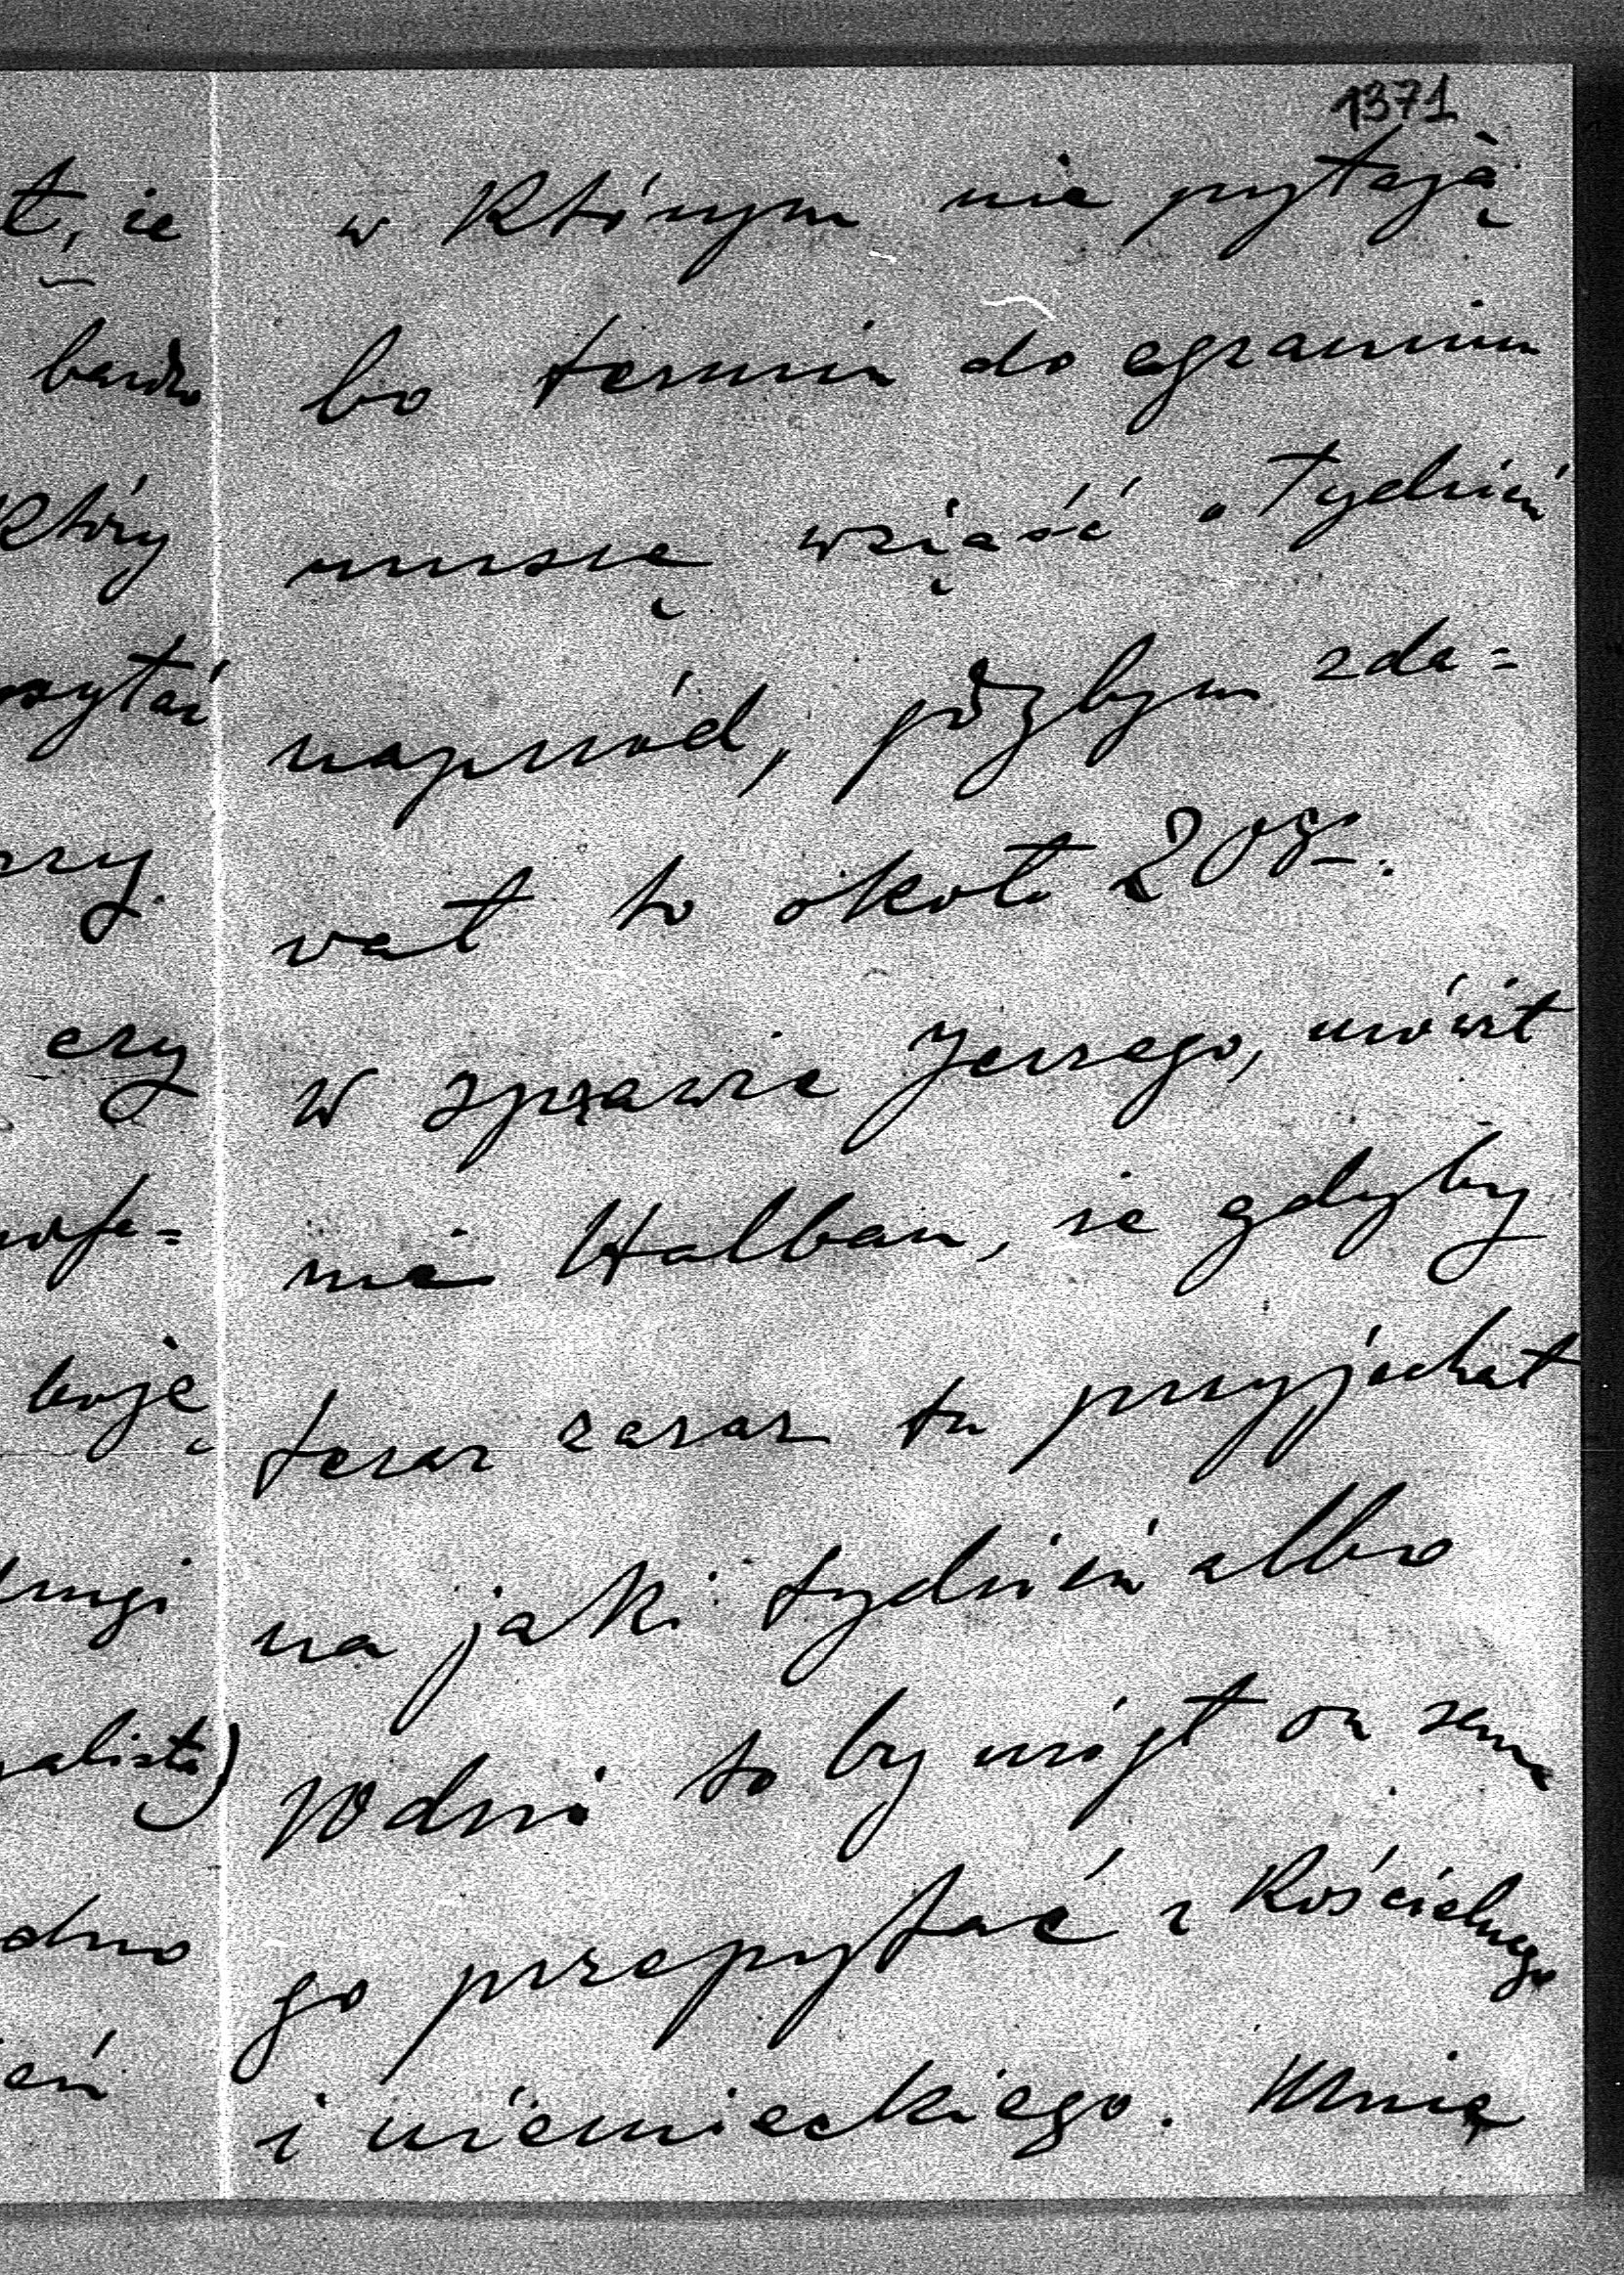 1371
t, że w którym nie pytają
bardzo bo termin do egzaminu
który muszę wziąść o tydzień
pytać naprzód, zda=
rzy wał to około 20go.
czy w sprawie Jerzego, mówił
profe= mi Halban, że gdyby
boję teraz zaraz tu przyjechał
drugi na jaki tydzień albo
alista) 10 dni to by mógł on sam
go przepytać z kościelnego
eń i niemieckiego. Mnie